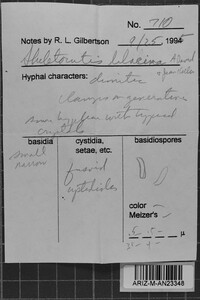 No. 710
Notes by R. L. Gilbertson 9/25 1994
Skeletocutis lilacina A. David
& Jean Keller
Hyphal characters: dimitic
clamps on generative
some hyphae with typical
crystals
basidia
cystidia, setae, etc.
basidiospores
small
narrow
fusoid
cystidioles
color
Melzer's
μ
ARIZ-M-AN23348